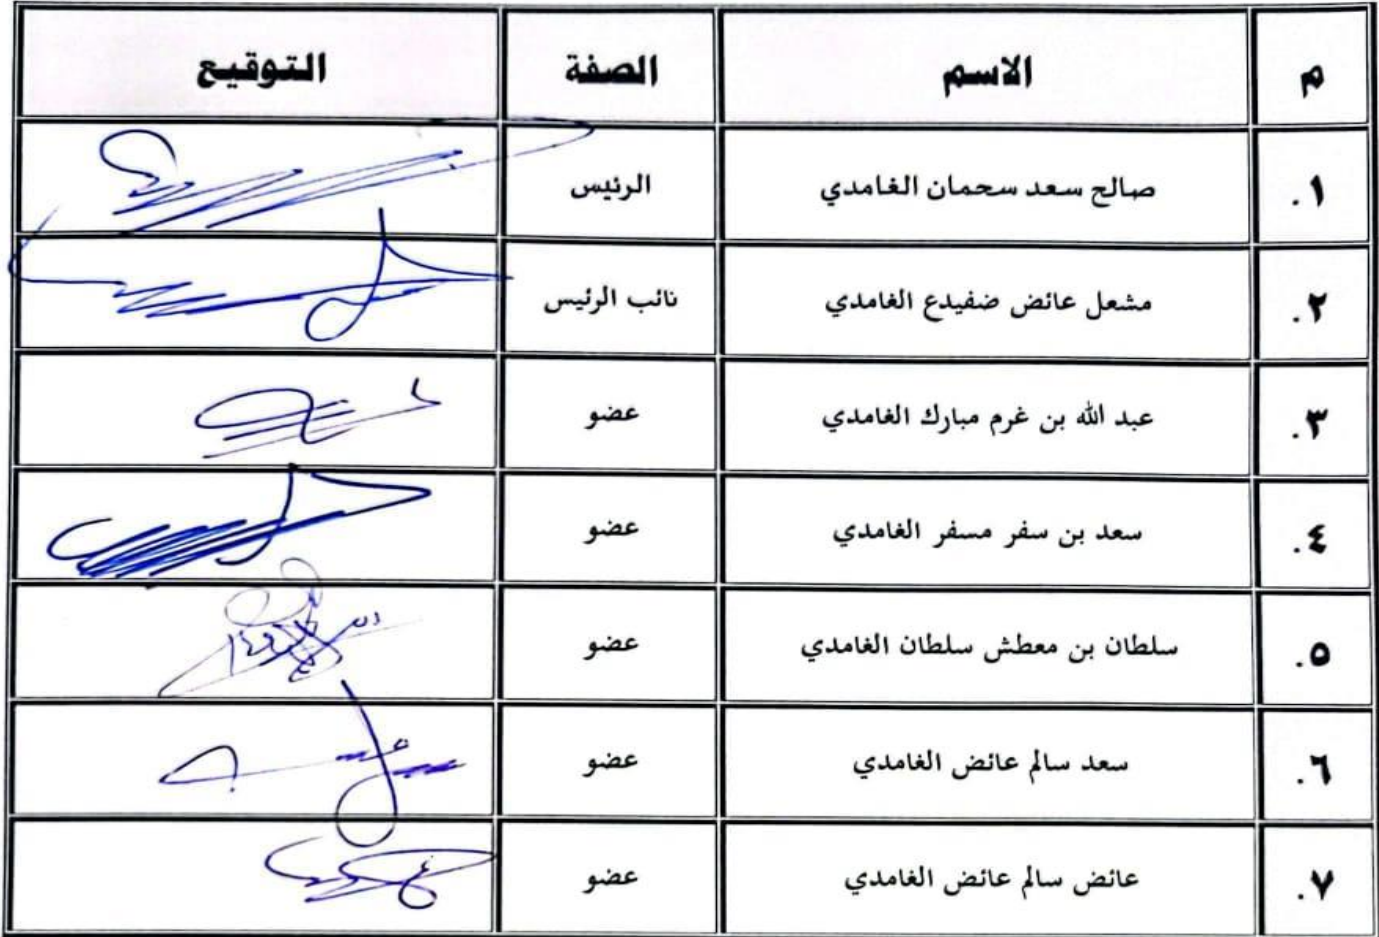 م الاسم الصفة التوقيع
١. صالح سعد سحمان الغامدي الرئيس
٢. مشعل عائض ضفيدع الغامدي نائب الرئيس
٣. عبد الله بن غرم مبارك الغامدي عضو
٤. سعد بن سفر مسفر الغامدي عضو
٥. سلطان بن معطش سلطان الغامدي عضو
٦. سعد سالم عائض الغامدي عضو
٧. عائض سالم عائض الغامدي عضو